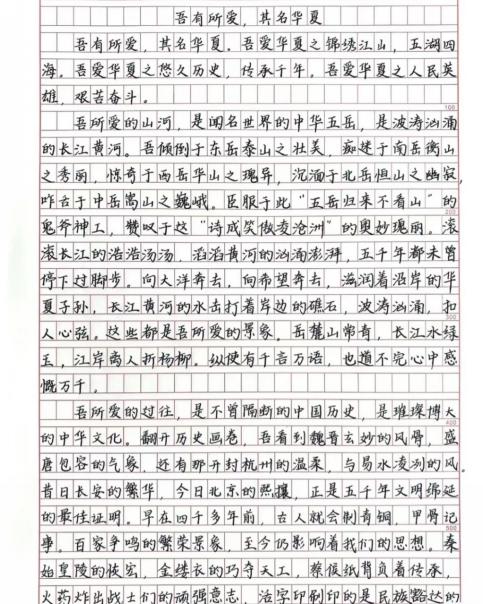 吾有所爱，其名华夏
吾有所爱，其名华夏。吾爱华夏之锦绣江山，五湖四
海。吾爱华夏之悠久历史，传承千年。吾爱华夏之人民英
雄，艰苦奋斗。
100
吾所爱的山河，是闻名世界的中华五岳，是波涛汹涌
的长江黄河。吾倾倒于东岳泰山之壮美，痴迷于南岳衡山
之秀丽，惊奇于西岳华山之瑰异，沉湎于北岳恒山之幽寂，
咋舌于中岳嵩山之巍峨。臣服于此“五岳归来不看山”的
200
鬼斧神工，赞叹于这“诗成笑傲凌沧洲”的奥妙瑰丽。滚
滚长江的浩浩汤汤，滔滔黄河的汹涌澎湃，五千年都未曾
停下过脚步。向大洋奔去，向希望奔去，滋润着沿岸的华
夏子孙，长江黄河的水击打着岸边的礁石，波涛汹涌，扣
300
人心弦。这些都是吾所爱的景象。岳麓山常奇，长江水绿
王，江岸离人折杨柳。纵使有千言万语，也道不完心中感
慨万千。
吾所爱的过往，是不曾隔断的中国历史，是璀璨博大
400
的中华文化。翻开历史画卷，吾看到魏晋玄妙的风骨，盛
唐包容的气象，还有那开封杭州的温柔，与易水凌冽的风。
昔日长安的繁华，今日北京的熙攘，正是五千年文明绵延
的最佳证明。早在四千多年前，古人就会制青铜，甲骨记
500
事。百家争鸣的繁荣景象，至今仍影响着我们的思想。秦
始皇陵的恢宏，金缕衣的巧夺天工，蔡侯纸背负着传承，
火药炸出战士们的顽强意志，活字印刷印的是民族豁达的